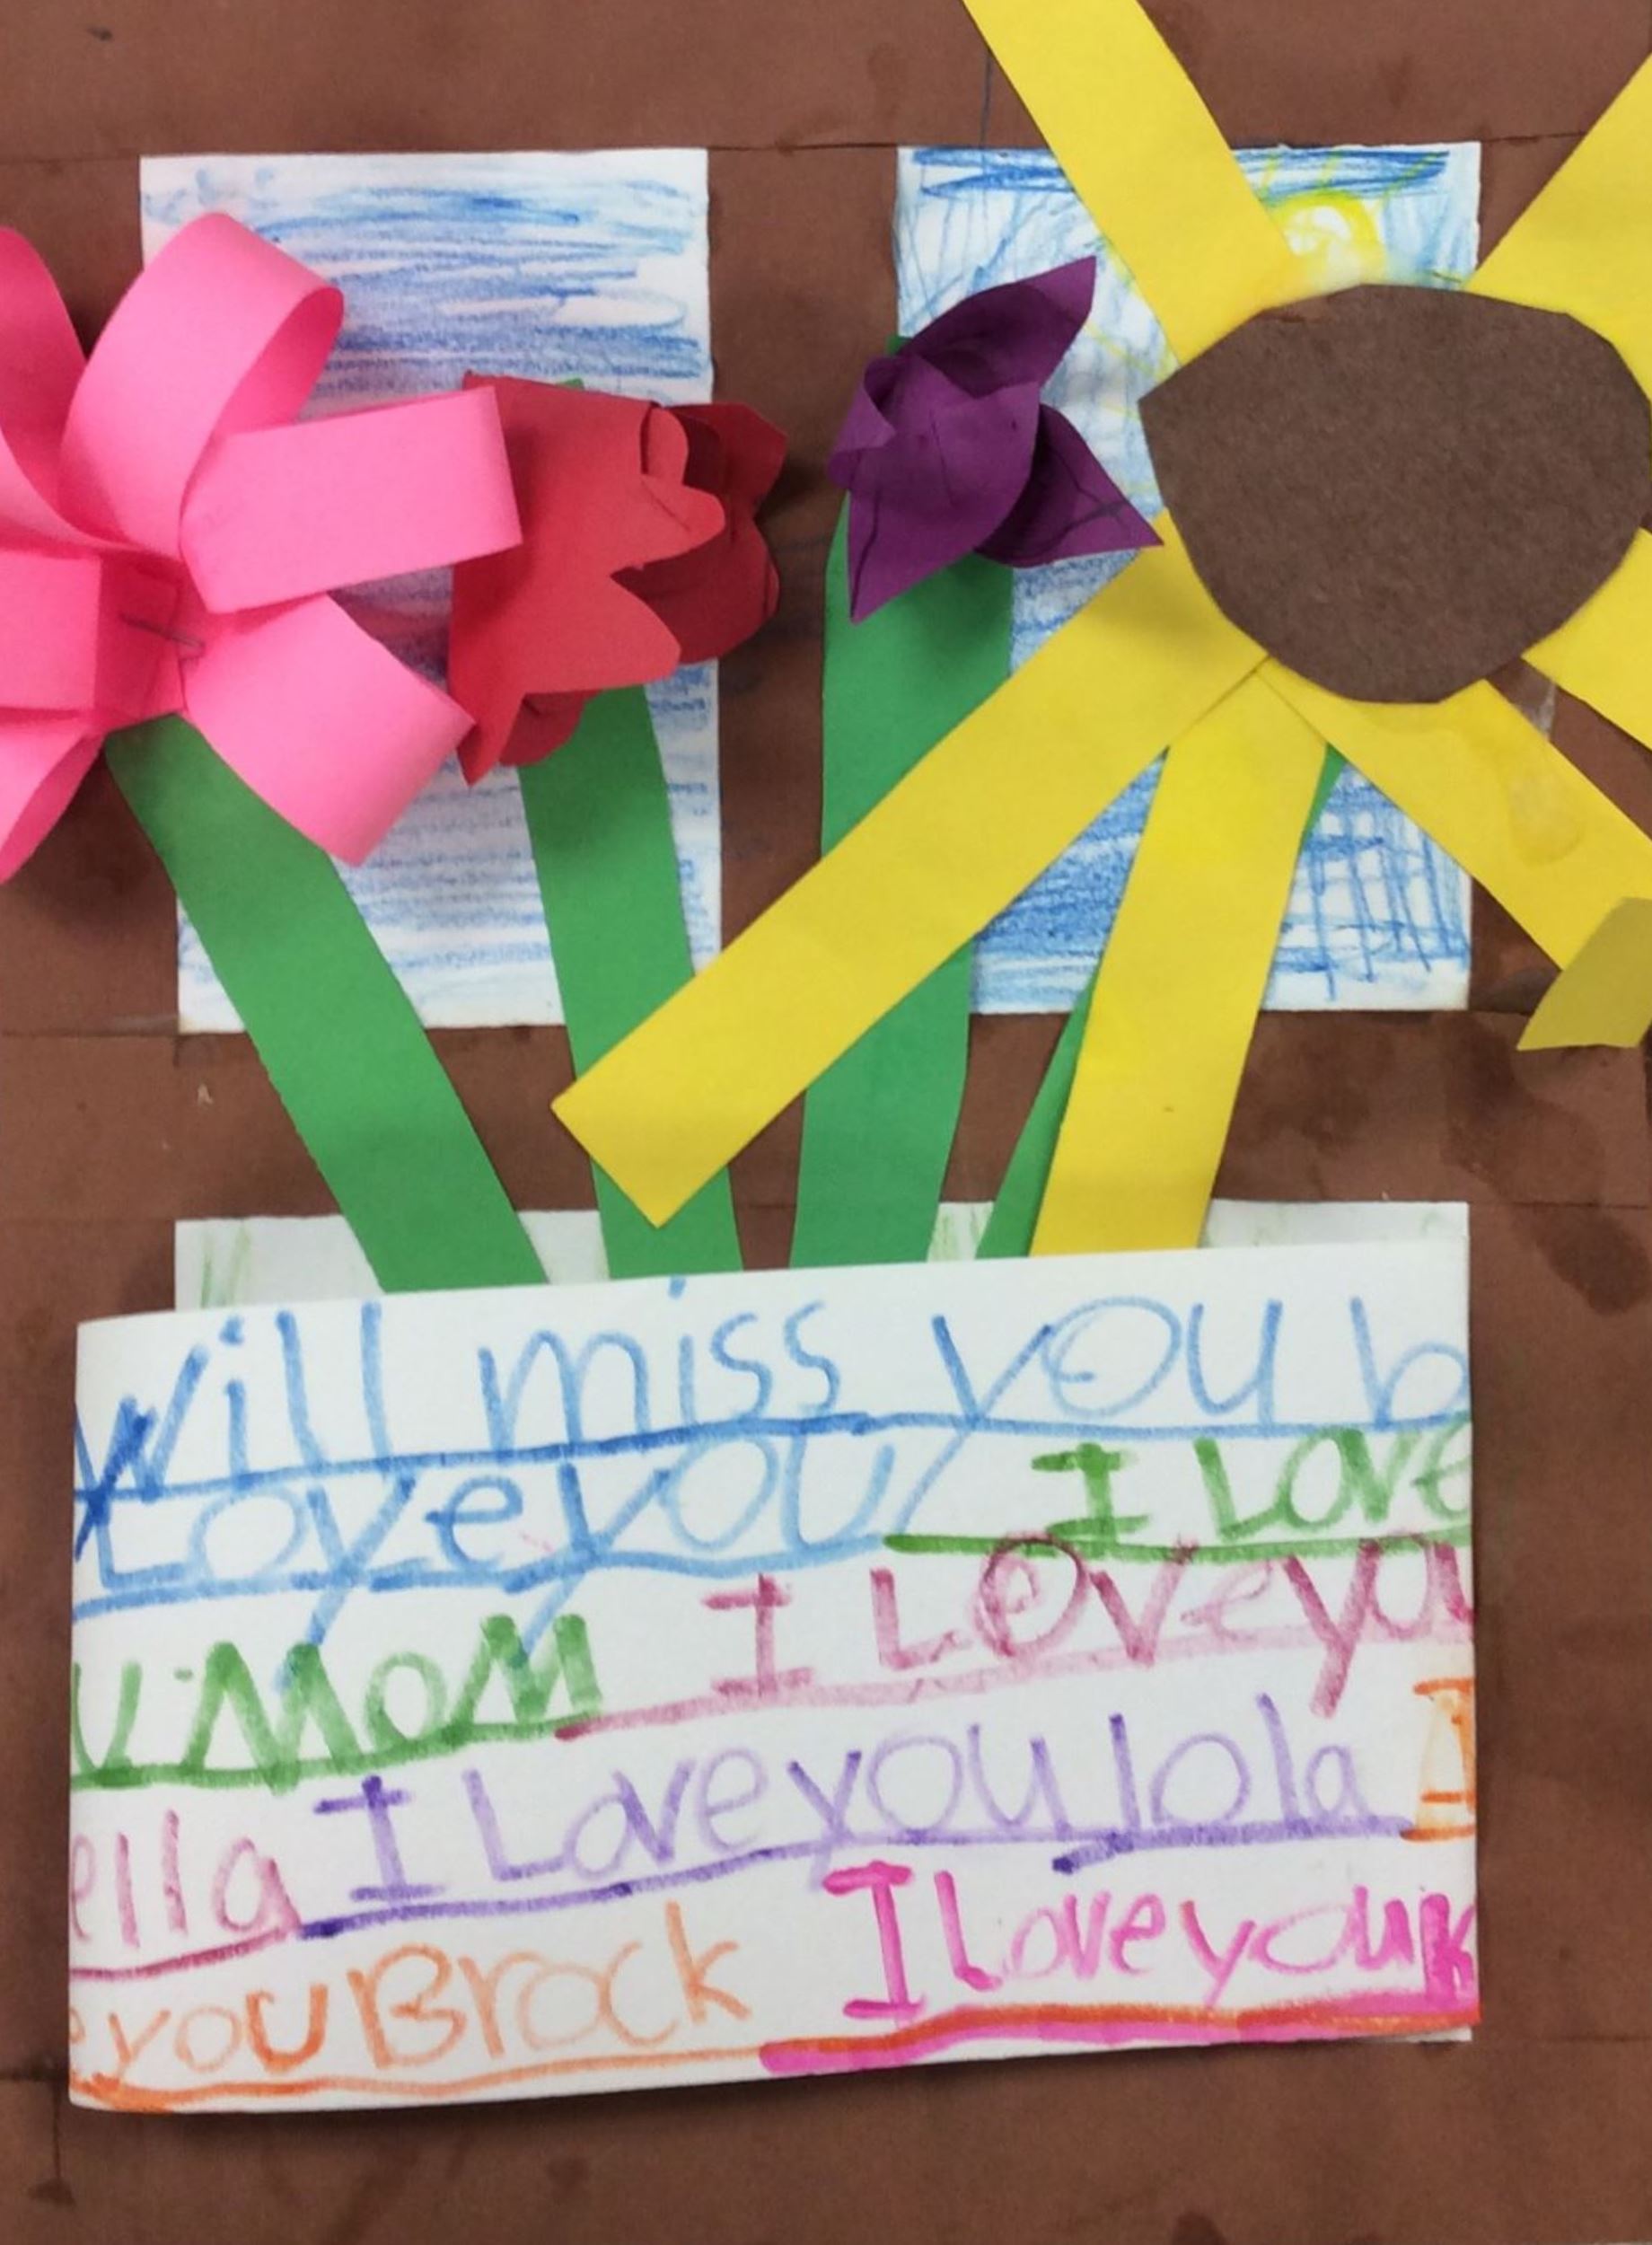 Will miss you b
Love you I Love
u MOM I Love yo
ella I Love you lola I
e you Brock I Love you K